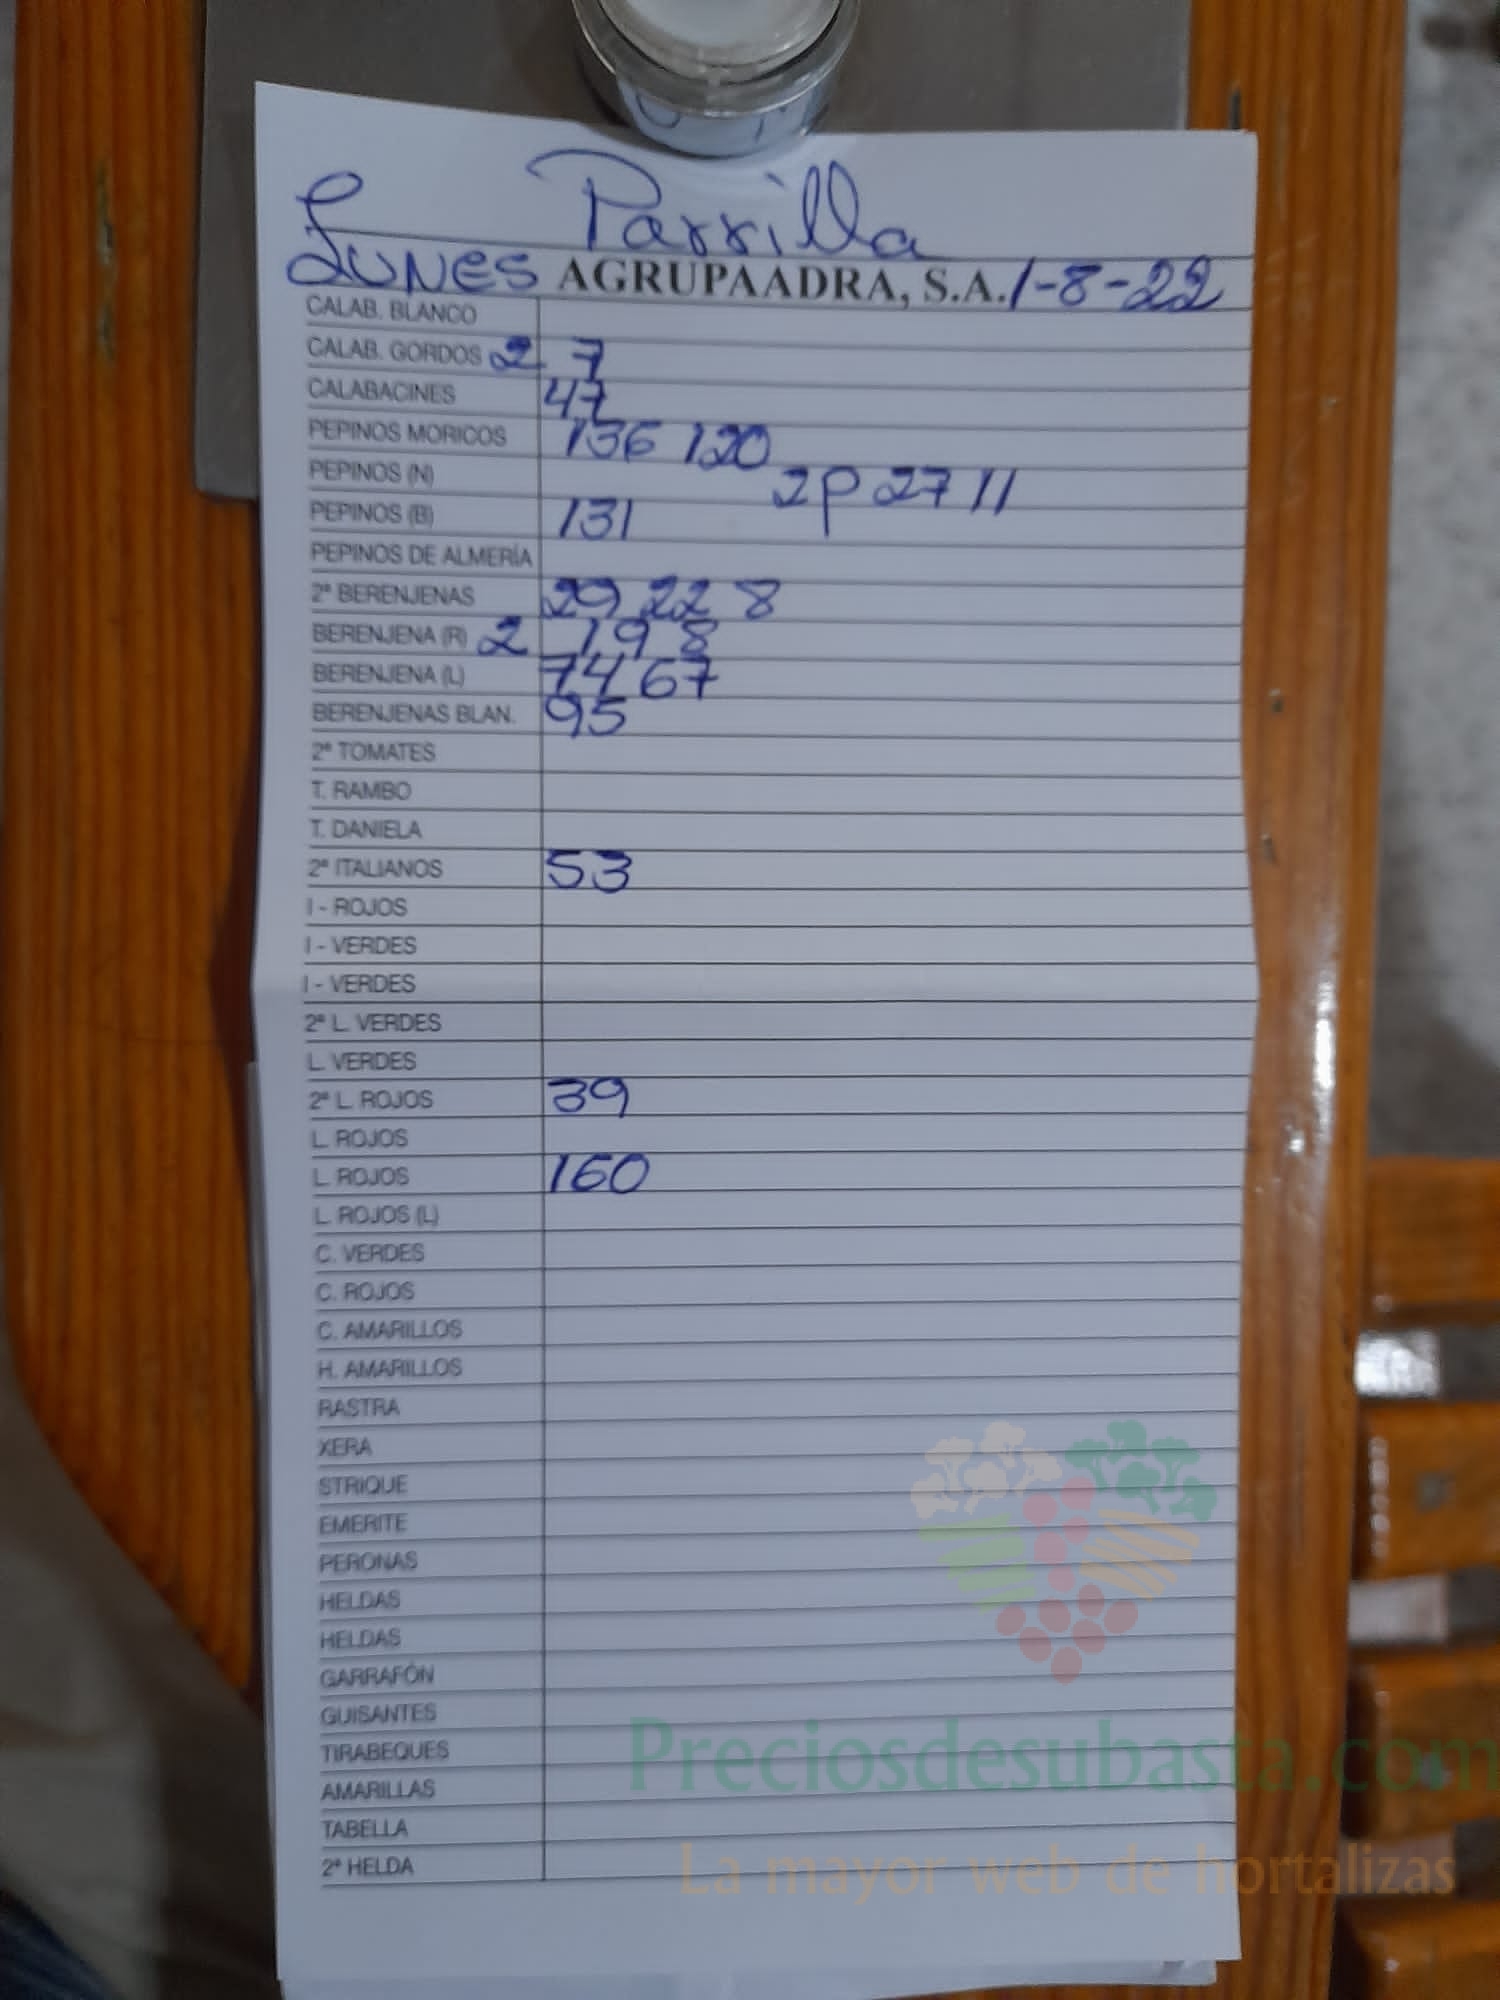 Parrilla
Lunes AGRUPAADRA, S.A. 1-8-22
CALAB. BLANCO
CALAB. GORDOS 2 7
CALABACINES 47
PEPINOS MORICOS 136 120
PEPINOS (N) 2P 27 11
PEPINOS (B) 131
PEPINOS DE ALMERÍA
2ª BERENJENAS 29 22 8
BERENJENA (R) 2 19 8
BERENJENA (L) 74 67
BERENJENAS BLAN. 95
2ª TOMATES
T. RAMBO
T. DANIELA
2ª ITALIANOS 53
I - ROJOS
I - VERDES
I - VERDES
2ª L. VERDES
L. VERDES
2ª L. ROJOS 39
L. ROJOS
L. ROJOS 160
L. ROJOS (L)
C. VERDES
C. ROJOS
C. AMARILLOS
H. AMARILLOS
RASTRA
XERA
STRIQUE
EMERITE
PERONAS
HELDAS
HELDAS
GARRAFÓN
GUISANTES
TIRABEQUES
AMARILLAS
TABELLA
2ª HELDA
Preciosdesubasta.com
La mayor web de hortalizas